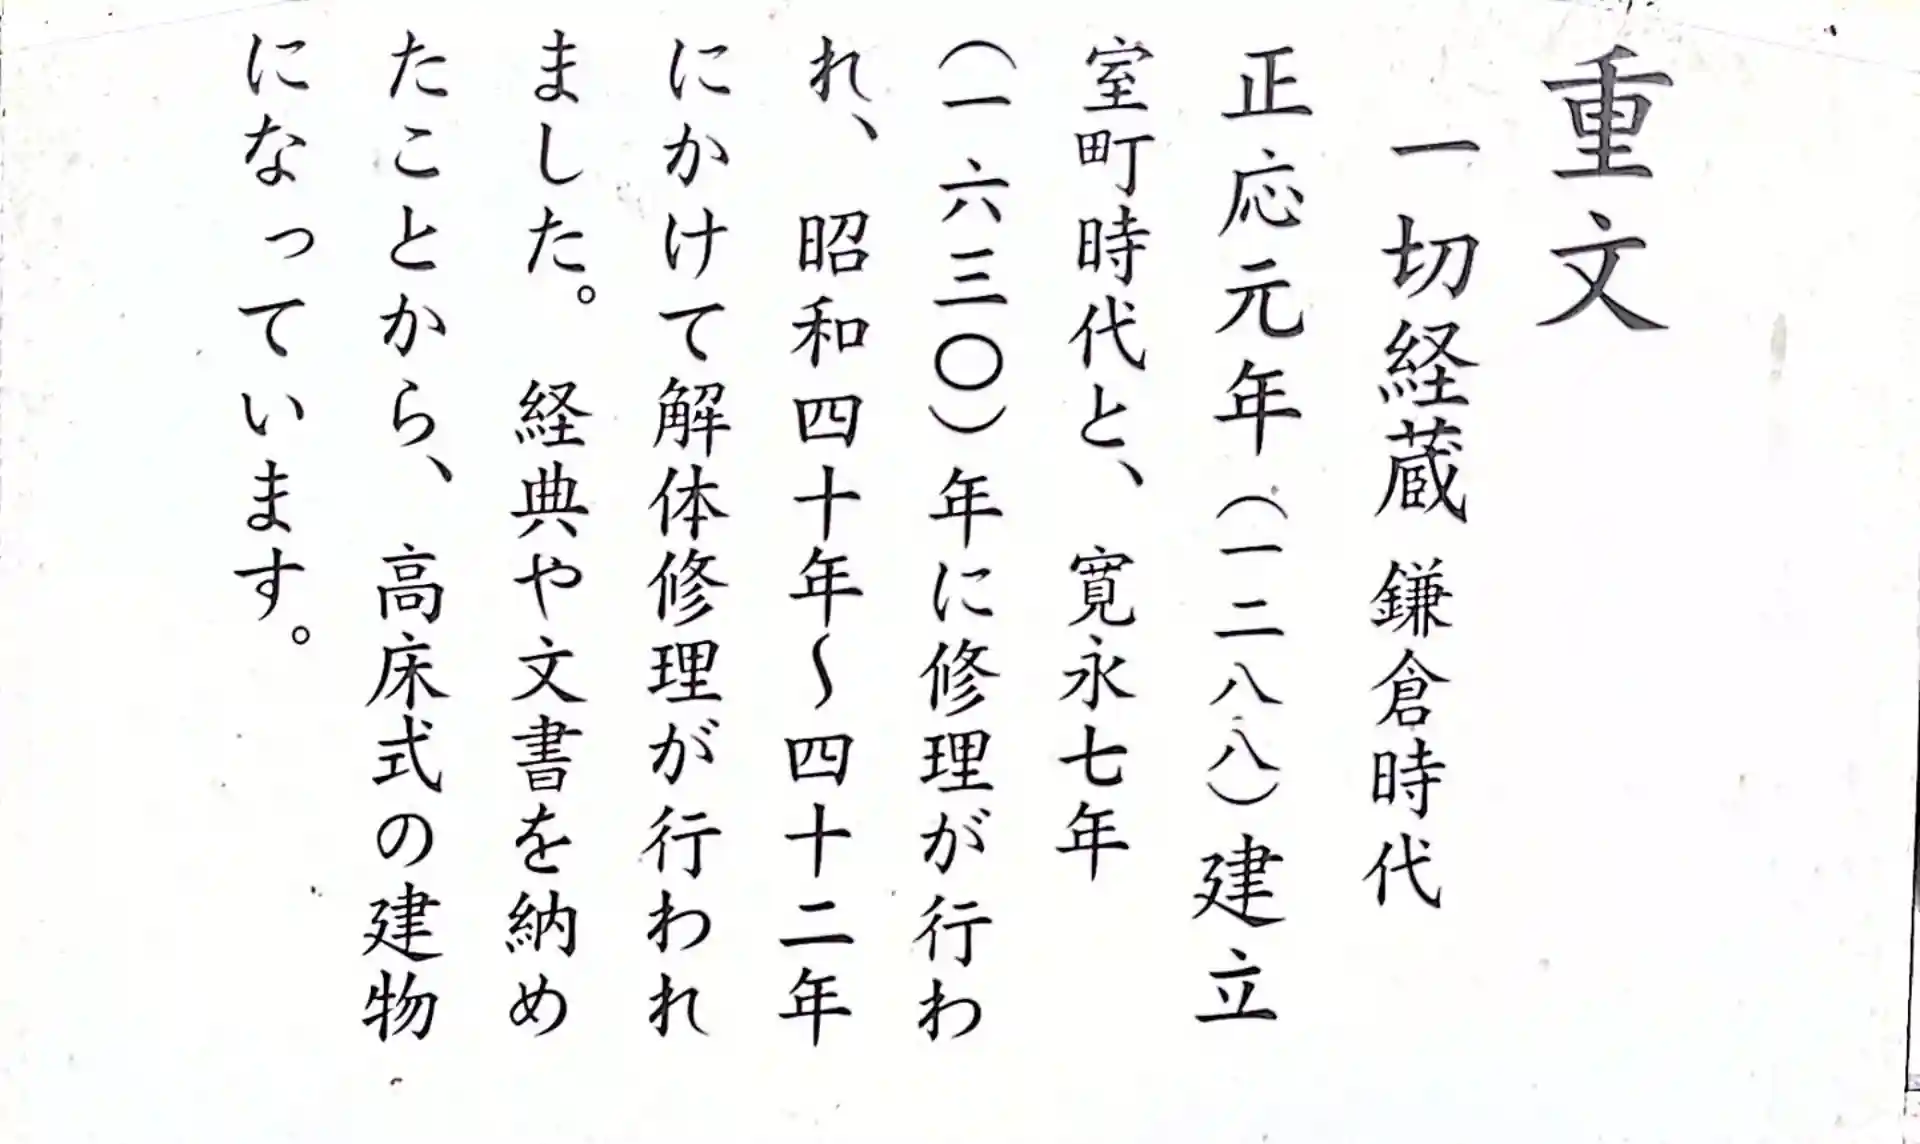 重文
一切経蔵 鎌倉時代
正応元年(一二八八)建立
室町時代と、寛永七年
(一六三〇)年に修理が行わ
れ、昭和四十年〜四十二年
にかけて解体修理が行われ
ました。経典や文書を納め
たことから、高床式の建物
になっています。